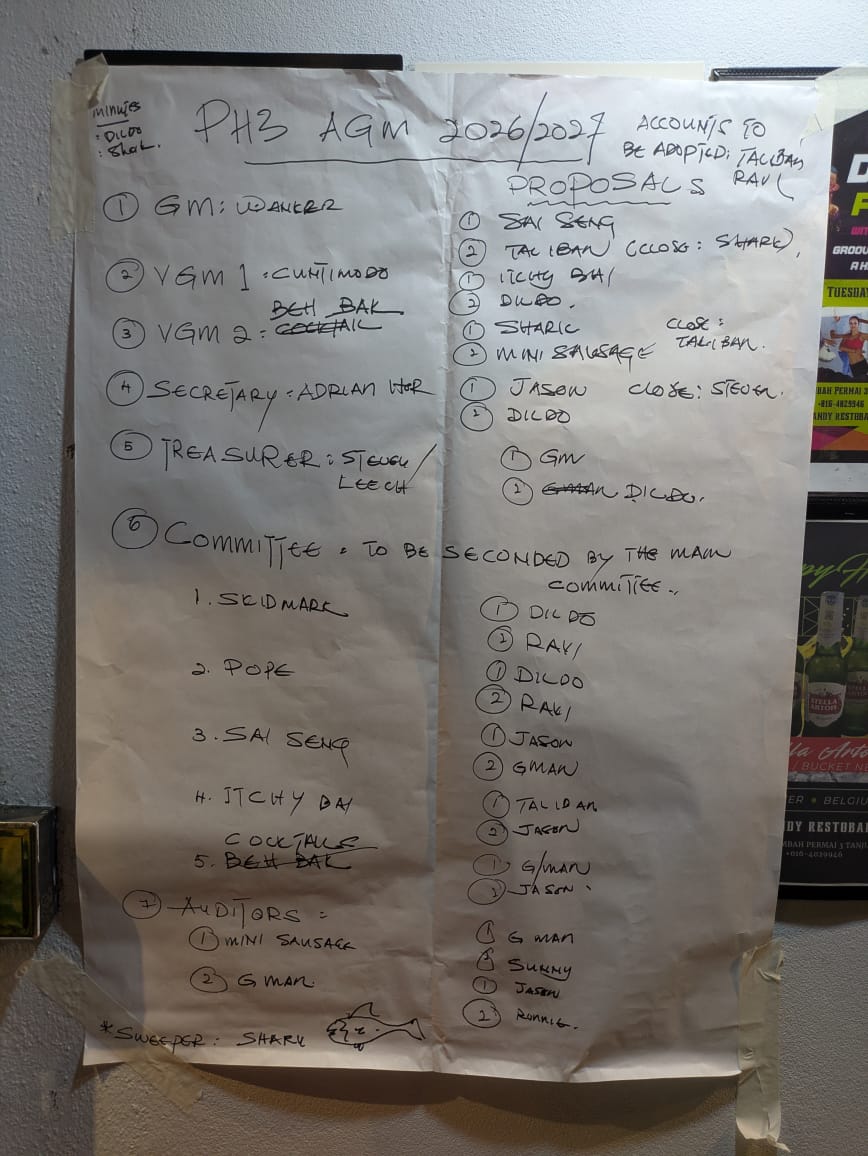 minutes
: DILDO
: Shak.
PH3 AGM 2026/2027
ACCOUNTS TO
BE ADOPTED: TALIBAN
RAVI
PROPOSALS
① GM: WANKER
① SAI SENG
② TALIBAN (CLOSE: SHARK),
② VGM 1: CUNTIMODO
① ITCHY BAI
② DILDO.
BEH BAK
③ VGM 2: COCKTAIL
① SHARK CLOSE:
② MINI SAUSAGE TALIBAN.
④ SECRETARY: ADRIAN HOR
① JASON CLOSE: STEVEN.
② DILDO
⑤ TREASURER: STEVEN/
LEECH
① GM
② GMAN DILDO.
⑥ COMMITTEE: TO BE SECONDED BY THE MAIN
COMMITTEE..
1. SKIDMARK
① DILDO
② RAVI
2. POPE
① DILDO
② RAVI
3. SAI SENG
① JASON
② GMAN
4. ITCHY BAI
① TALIBAN
② JASON
COCKTAILS
5. BEH BAK
① G/MAN
② JASON
⑦ AUDITORS:
① MINI SAUSAGE
① G MAN
② SUNNY
② G MAN.
① JASON
② RONNIE.
*SWEEPER: SHARK
TUESDAY
STELLA
ARTOIS
BUCKET
BELGIU
RESTOBAR
+016-4029946